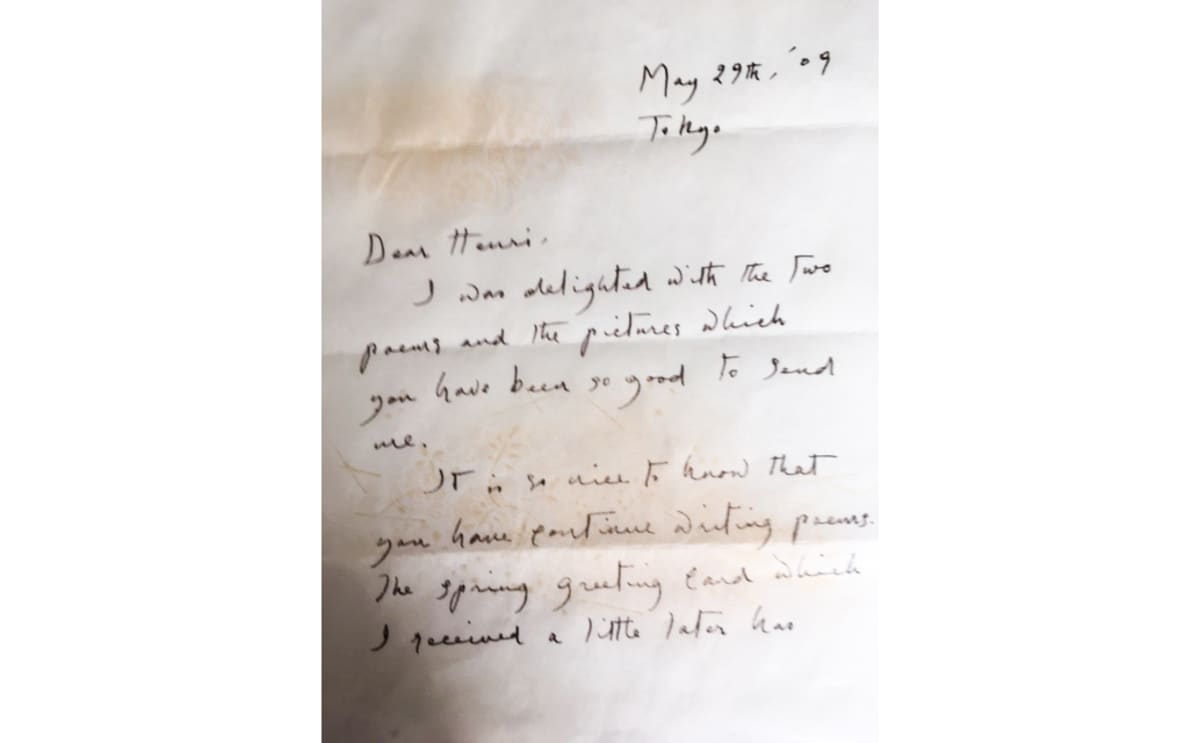 May 29th, '09
Tokyo
Dear Henri,
I was delighted with the two
poems and the pictures which
you have been so good to send
me.
It is so nice to know that
you have continue writing poems.
The spring greeting card which
I received a little later has